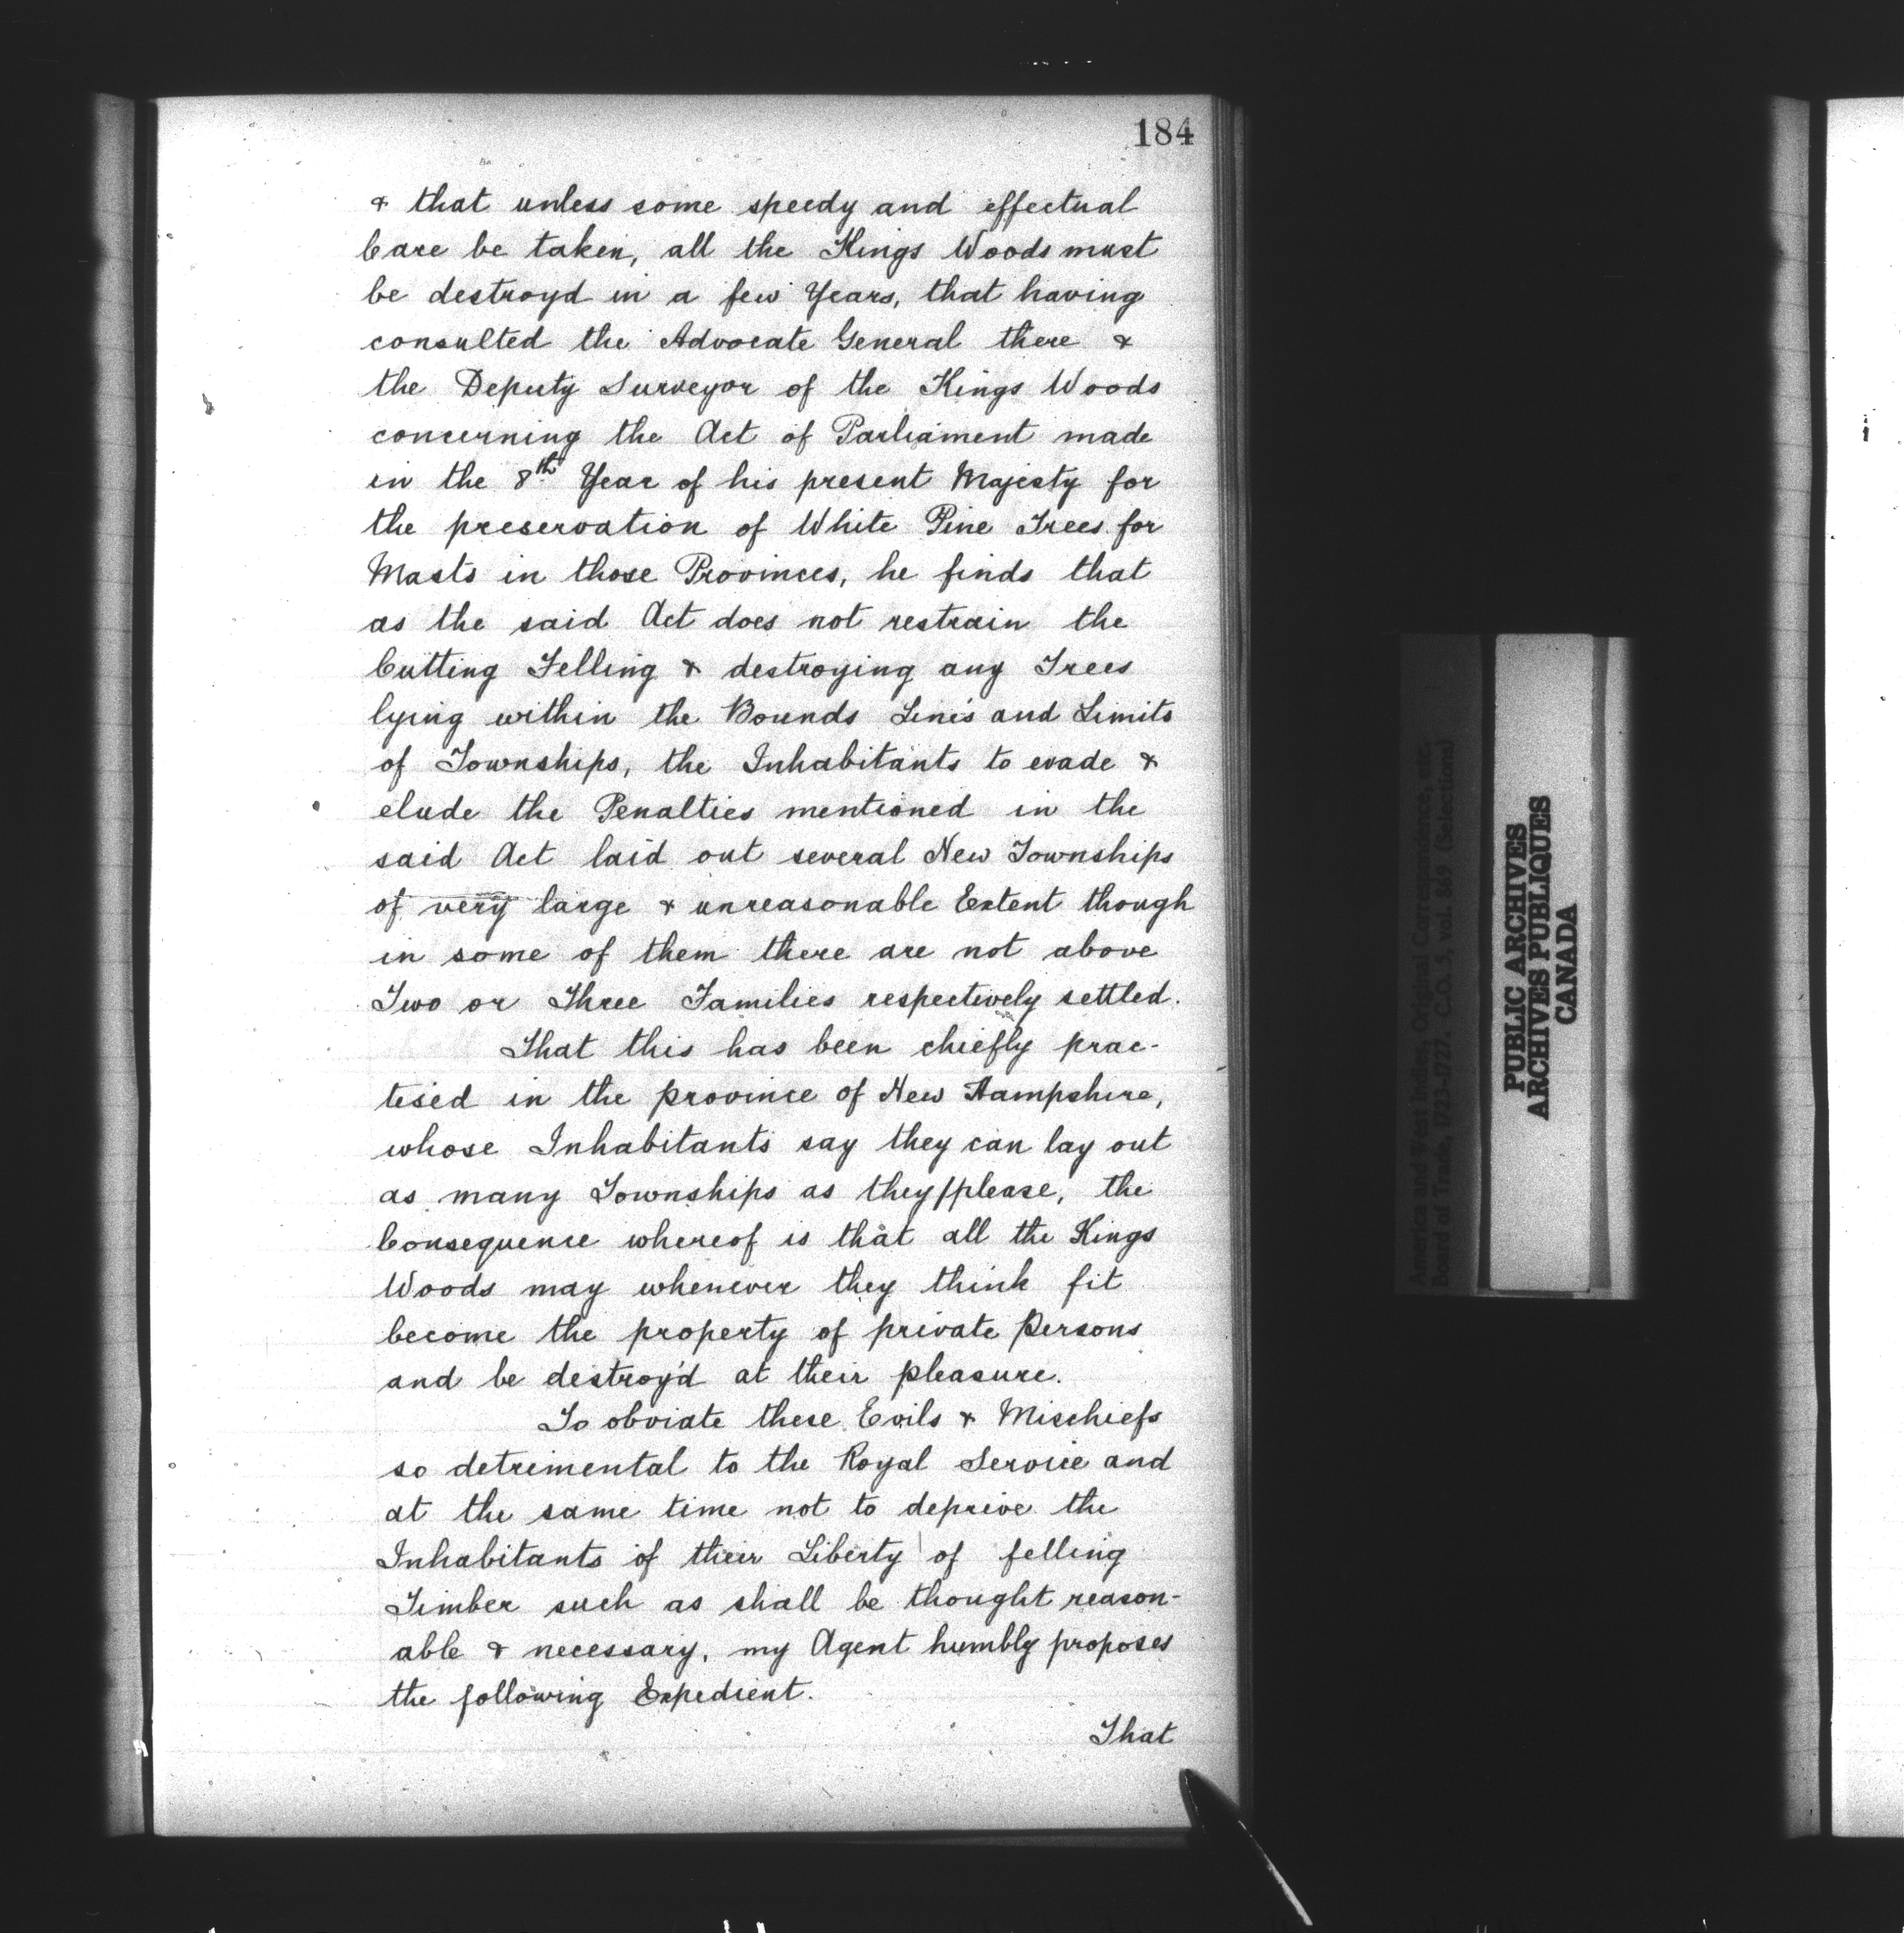 184
& that unless some speedy and effectual
Care be taken, all the Kings Woods must
be destroyd in a few Years, that having
consulted the Advocate General there &
the Deputy Surveyor of the Kings Woods
concerning the Act of Parliament made
in the 8th Year of his present Majesty for
the preservation of White Pine Trees for
Masts in those Provinces, he finds that
as the said Act does not restrain the
Cutting Felling & destroying any Trees
lying within the Bounds Lines and Limits
of Townships, the Inhabitants to evade &
elude the Penalties mentioned in the
said Act laid out several New Townships
of very large & unreasonable Extent though
in some of them there are not above
Two or Three Families respectively settled.
That this has been chiefly prac-
tised in the province of New Hampshire,
whose Inhabitants say they can lay out
as many Townships as they please, the
Consequence whereof is that all the Kings
Woods may whenever they think fit
become the property of private Persons
and be destroy'd at their pleasure.
To obviate these Evils & Mischiefs
so detrimental to the Royal Service and
at the same time not to deprive the
Inhabitants of their Liberty of felling
Timber such as shall be thought reason-
able & necessary, my Agent humbly proposes
the following Expedient.
That
America and West Indies, Original Correspondence, etc.
Board of Trade, 1723-1727. C.O. 5, vol. 869 (Selections)
PUBLIC ARCHIVES
ARCHIVES PUBLIQUES
CANADA